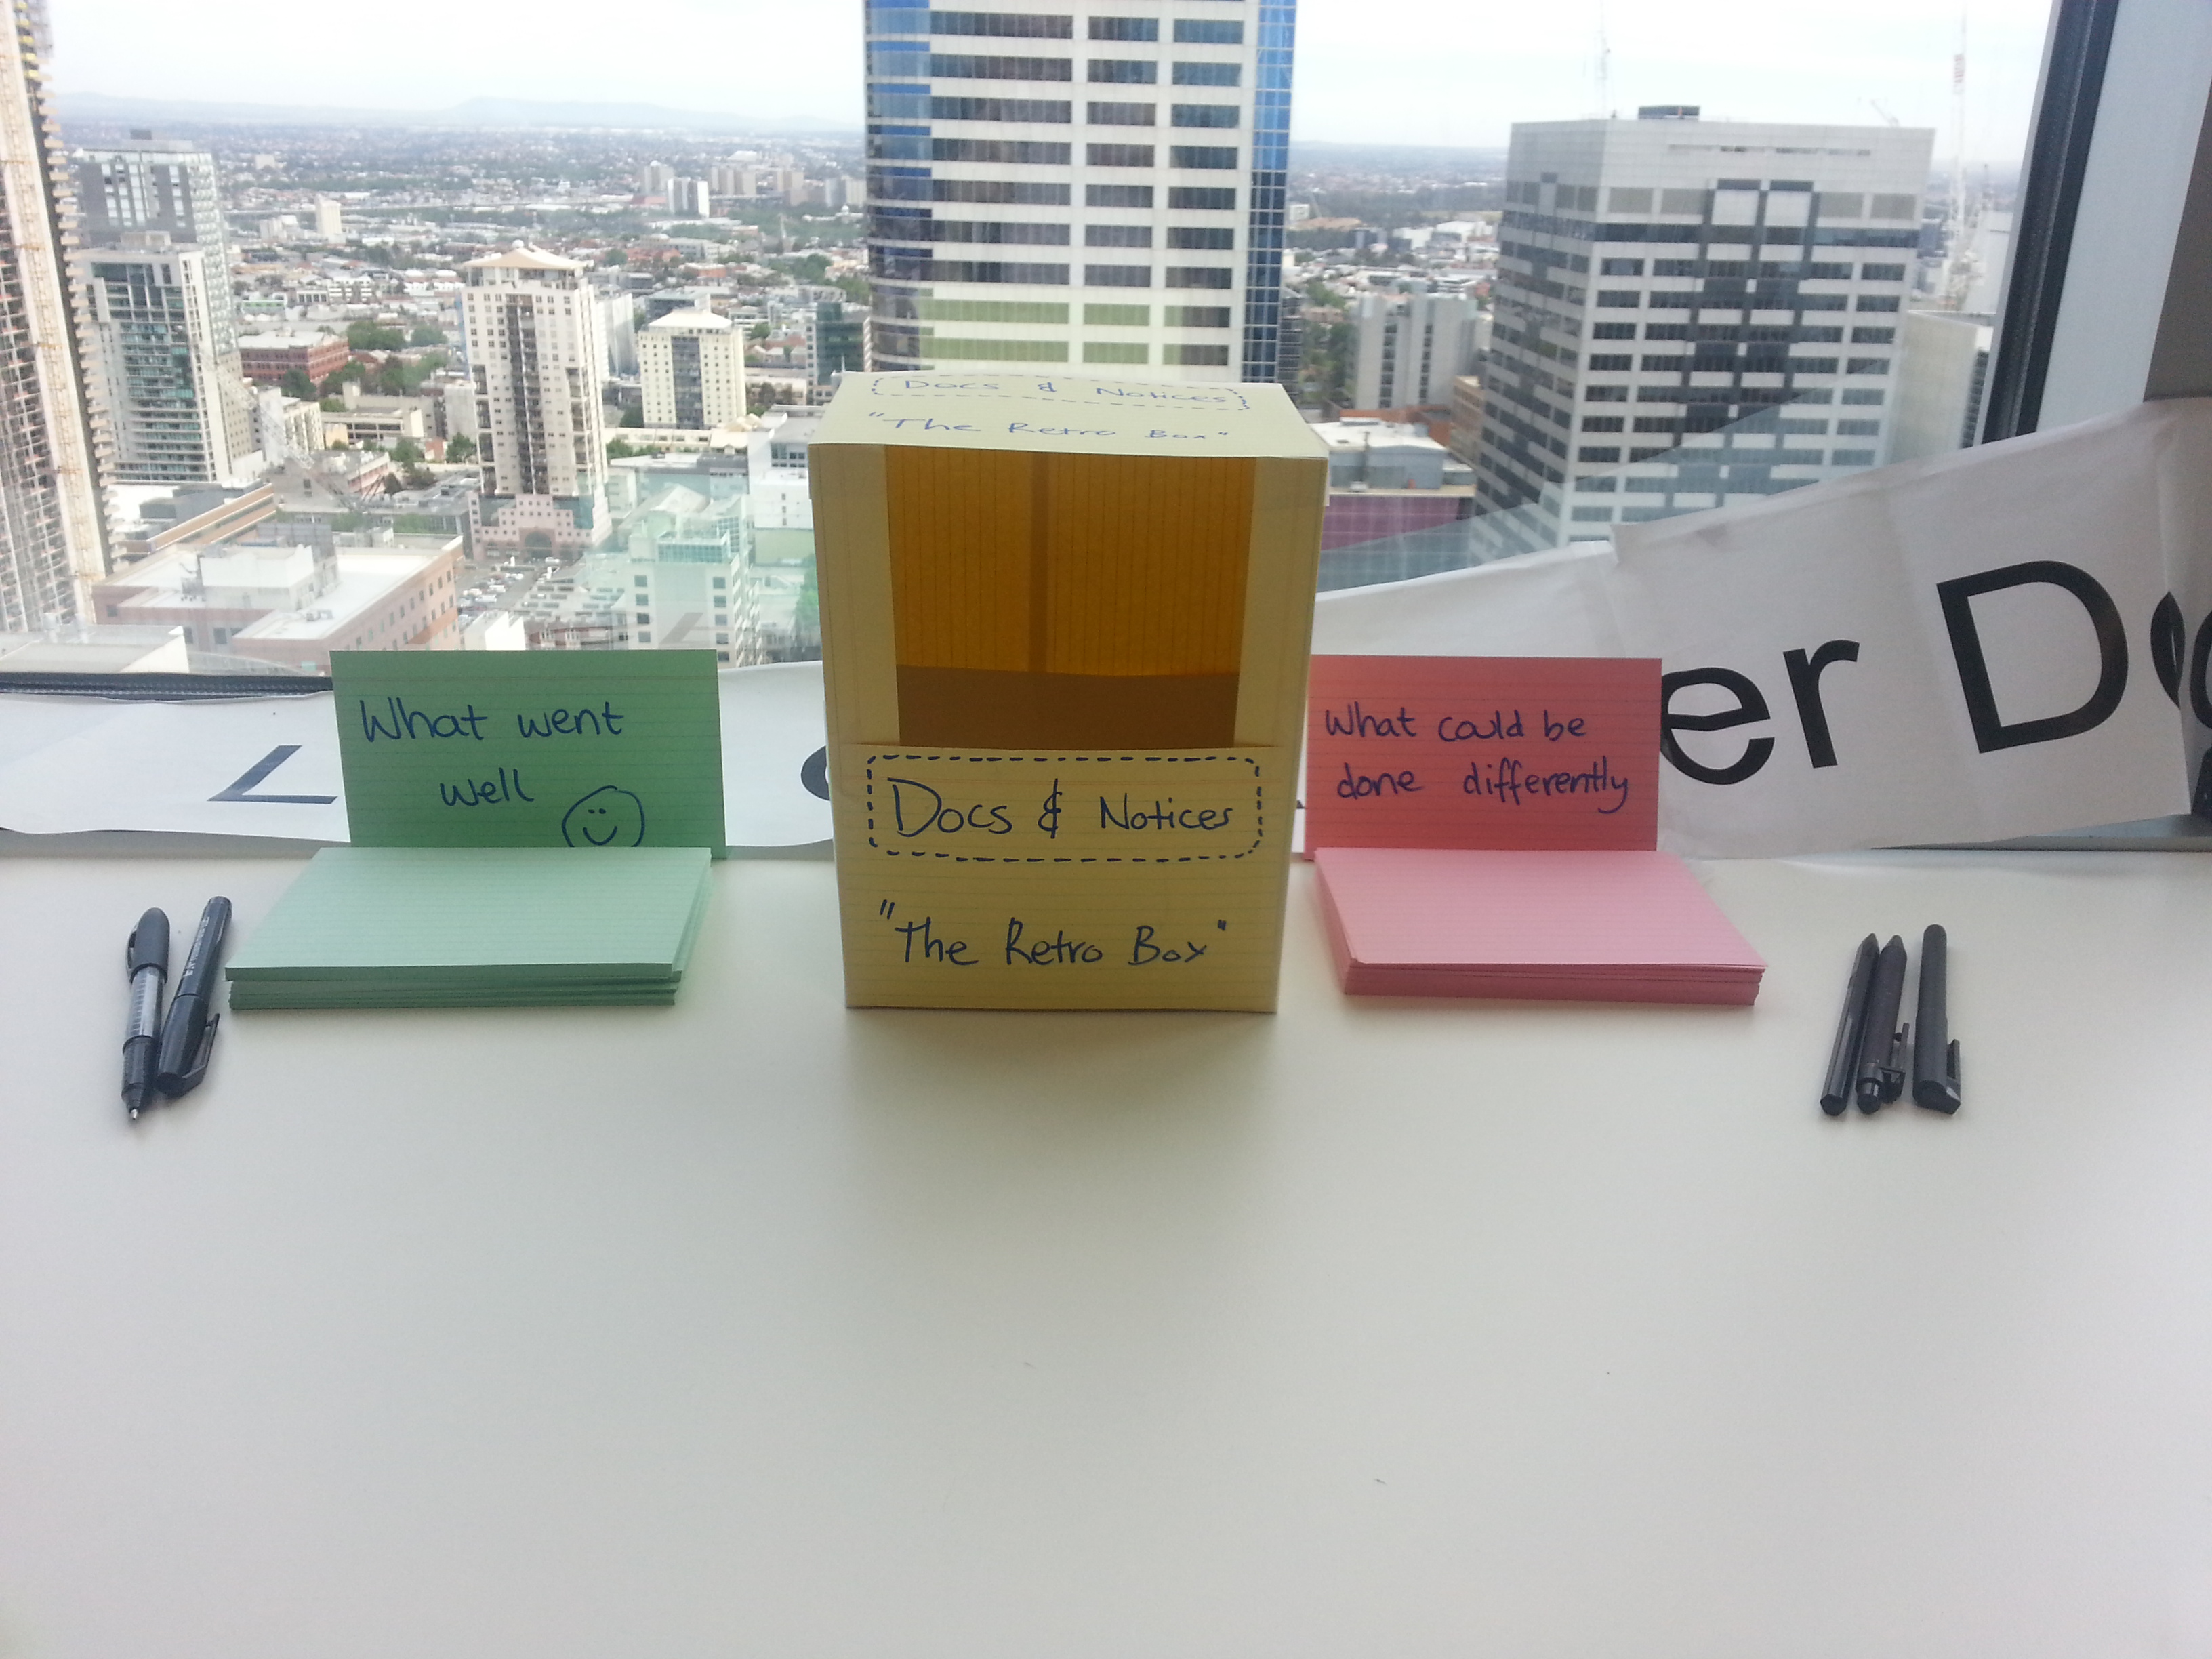 Docs & Notices
"The Retro Box"
What went
well
Docs & Notices
"The Retro Box"
What could be
done differently
er D